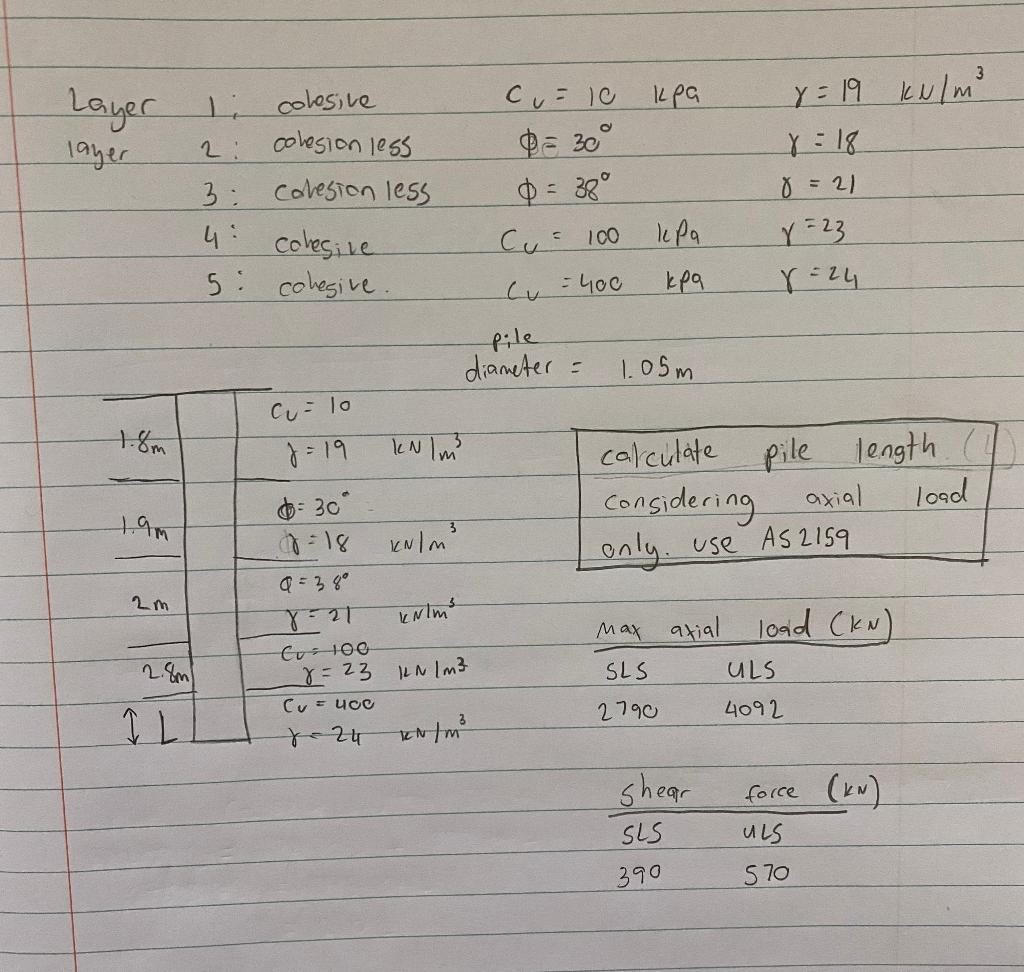 Layer 1: cohesive Cu = 10 kpa γ = 19 kN/m³
layer 2: cohesion less ф = 30° γ = 18
3: cohesion less ф = 38° γ = 21
4: cohesive Cu = 100 kPa γ = 23
5: cohesive. Cu = 400 kpa γ = 24
pile
diameter = 1.05m
Cu = 10
1.8m
γ = 19 kN/m³
ф = 30°
1.9m
γ = 18 kN/m³
ф = 38°
2m
γ = 21 kN/m³
Cu = 100
2.8m
γ = 23 kN/m³
Cu = 400
L
γ = 24 kN/m³
calculate pile length (L)
considering axial load
only. use AS2159
Max axial load (KN)
SLS ULS
2790 4092
Shear force (KN)
SLS ULS
390 570